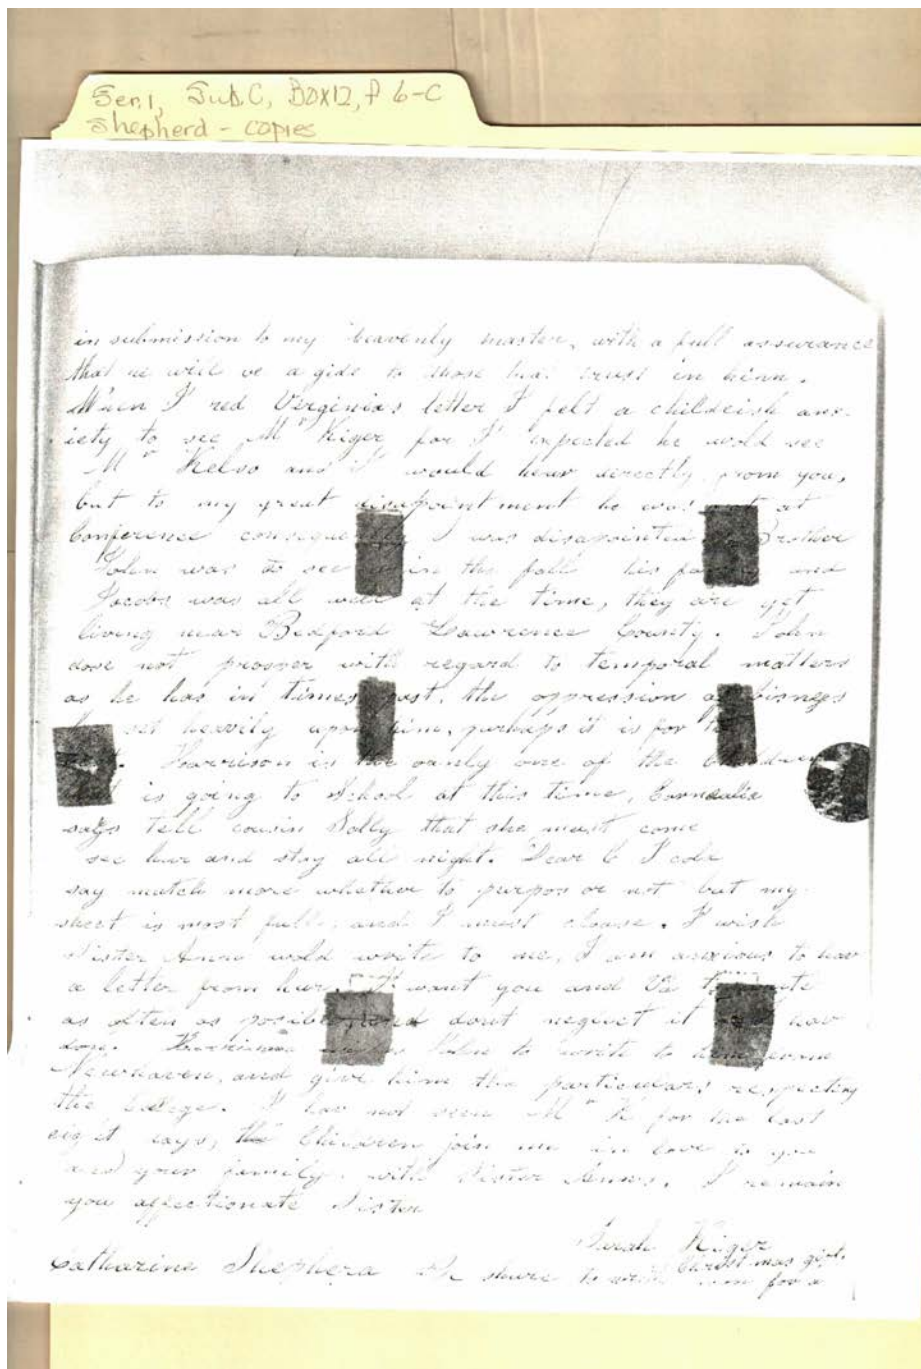 Ser.1, Sub.C, BOX12, f 6-C
Shepherd - copies
in submission to my heavenly master, with a full assurance
that he will be a gide to those that trust in him.
When I red Virginias letter I felt a childeish anx-
iety to see Mr Kiger for I expected he wold see
Mr Kelso and I would hear directly from you,
but to my great disapointment he was at
Conference I was disapointed Brother
John was to see in the fall his and
Jacobs was all well at the time, they are yet
living near Bedford Lawrence County. John
dose not prosper with regard to temporal matters
as he has in times past, the oppression of bisness
set heavily upon him, perhaps it is for
Harrison is the oanly one of the Children
is going to School at this time,
says tell cousin Solly that she must come
see hur and stay all night. Dear C I cold
say mutch more whether to purpos or not but my
sheet is most full and I must close. I wish
Sister Anne wold write to me, I am anxious to hav
a letter from hur. I want you and Va to write
as often as posible and dont neglect it hav
done. John to write to
Newhaven, and give him the particulars respecting
the Colege. I hav not seen Mr K for the last
eight days, the Children join me in love to you
and your family with Sister Annes. I remain
you affectionate Sister
Sarah Kiger
Catharine Shepherd Be shure to for a
Christmas gift